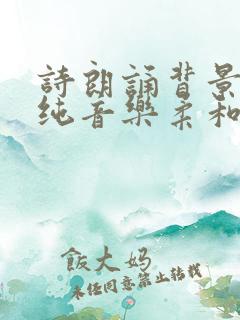 詩朗誦背景
纯音樂柔和
飯大妈
未经同意禁止转载